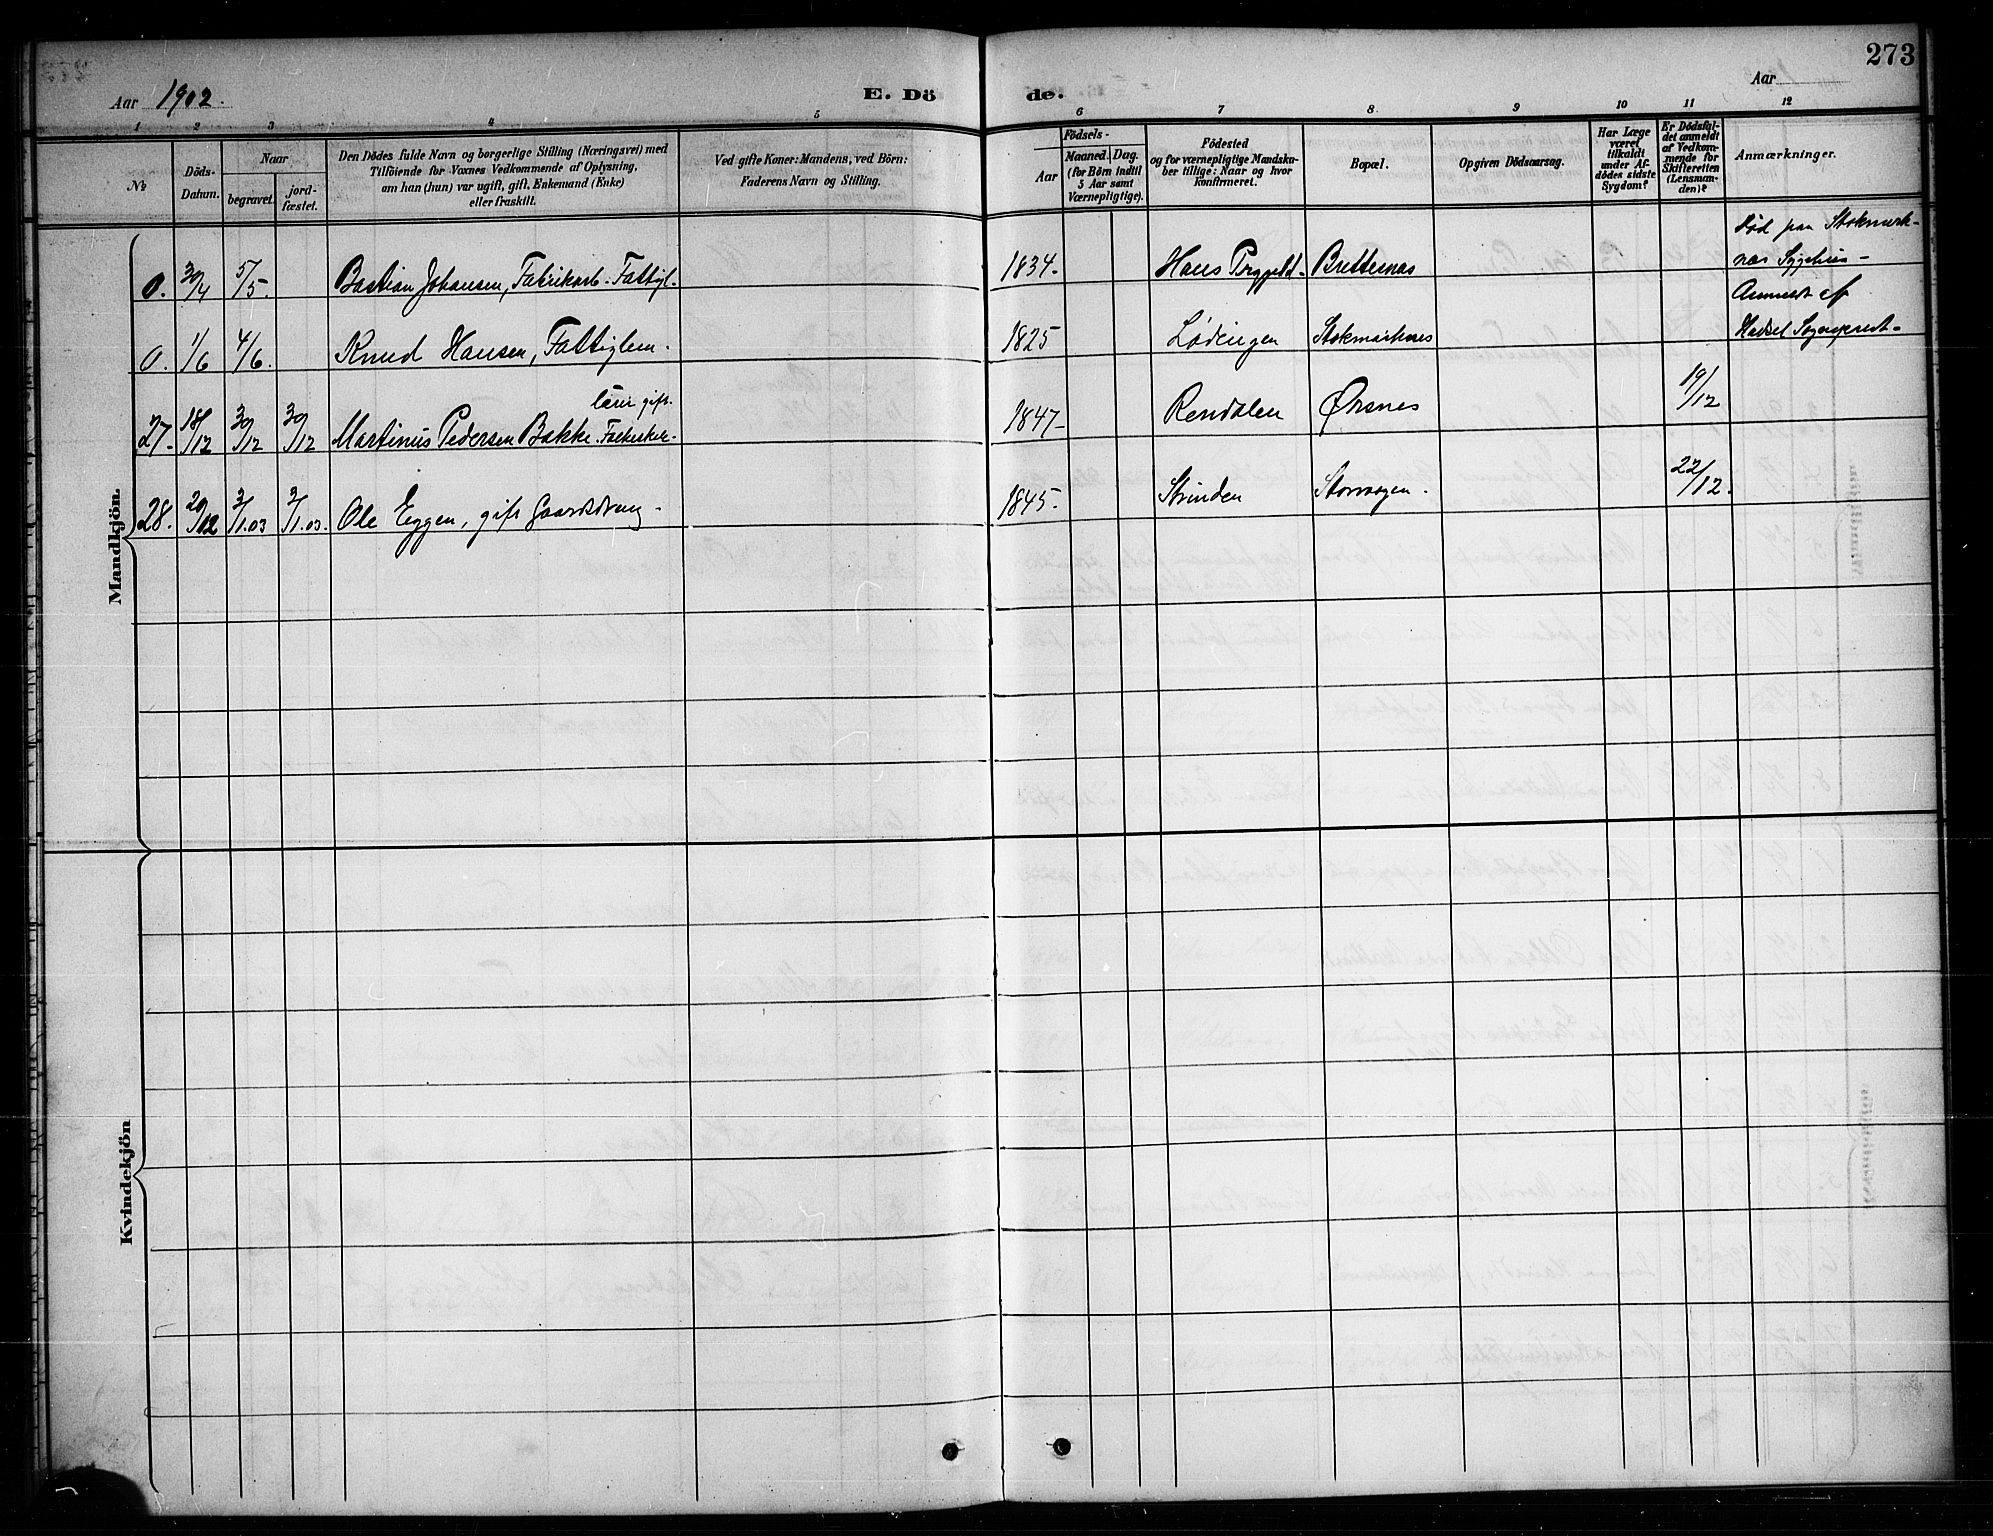 273
Aar 1902.
E. Dö
de.
Aar
1 2 3 4 5 6 7 8 9 10 11 12
№
Döds-
Datum.
Naar
begravet.
jord-
fæstet.
Den Dödes fulde Navn og borgerlige Stilling (Næringsvei) med
Tilföiende for Voxnes Vedkommende af Oplysning,
om han (hun) var ugift, gift, Enkemand (Enke)
eller fraskilt.
Ved gifte Koner: Mandens, ved Börn:
Faderens Navn og Stilling.
Födsels-
Aar
Maaned. Dag.
(for Börn indtil
5 Aar samt
Værnepligtige).
Födested
og for værnepligtige Mandska-
ber tillige: Naar og hvor
konfirmeret.
Bopæl.
Opgiven Dödsaarsag.
Har Læge
været
tilkaldt
under Af-
dödes sidste
Sygdom?
Er Dödsfal-
det anmeldt
af Vedkom-
mende for
Skifteretten
(Lensman-
den)?
Anmærkninger.
Mandkjön.
0. 30/4 5/5. Bastian Johansen, Fabrikarb. Fattigl. 1834- Brettesnæs
Död paa Stokmark-
næs Sygehus -
Anmeldt af
Hadsel Sogneprest-
0. 1/6 4/6. Knud Hansen, Fattiglem. 1825 Lødingen Stokmarknes
27- 18/12 30/12 30/12 Martinus Pedersen Bakke. lærer gift. 1847- Rendalen Ørsnes 19/12
28. 20/12 3/1.03 3/1.03. Ole Eggen, gift Gaardbrug- 1845. Strinden Storvaagen. 22/12.
Kvindekjön